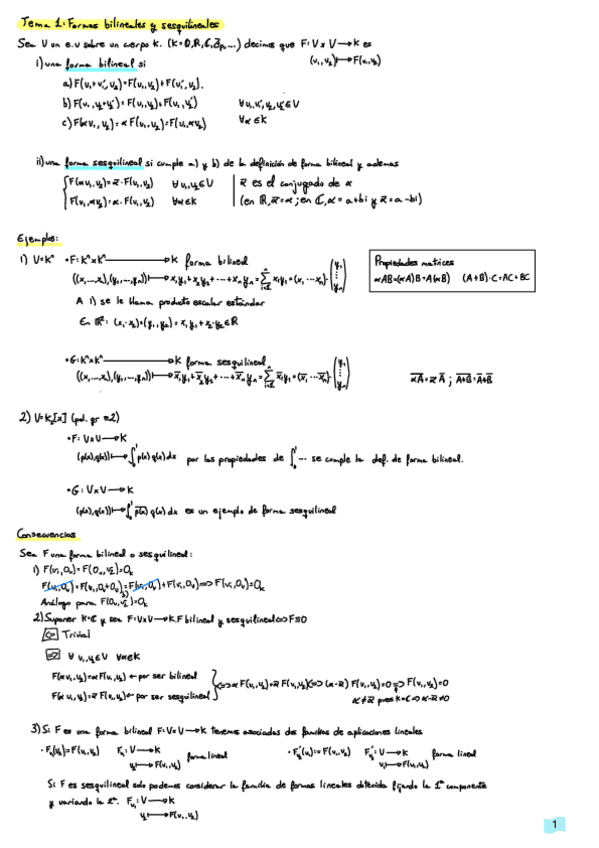 Tema 1: Formas bilineales y sesquilineales
Sea V un e.v sobre un cuerpo K. (K=Q,R,C,Zp,...) decimos que F: V x V → K es
(v₁,v₂) ↦ F(v₁,v₂)
i) una forma bilineal si
a) F(v₁+v₁',v₂)=F(v₁,v₂)+F(v₁',v₂).
b) F(v₁,v₂+v₂')=F(v₁,v₂)+F(v₁,v₂') ∀v₁,v₁',v₂,v₂'∈V
c) F(αv₁,v₂)=αF(v₁,v₂)=F(v₁,αv₂) ∀α∈K
ii) una forma sesquilineal si cumple a) y b) de la definición de forma bilineal y además
F(αv₁,v₂)=ᾱ·F(v₁,v₂) ∀v₁,v₂∈V ᾱ es el conjugado de α
F(v₁,αv₂)=α·F(v₁,v₂) ∀α∈K (en R, ᾱ=α; en C, α=a+bi y ᾱ=a-bi)
Ejemplos:
1) V=Kⁿ • F: Kⁿ x Kⁿ → K forma bilineal
((x₁,...,xₙ),(y₁,...,yₙ)) ↦ x₁y₁+x₂y₂+...+xₙyₙ=∑ᵢ₌₁ⁿ xᵢyᵢ=(x₁ ... xₙ)·(y₁ ⋮ yₙ)
Propiedades matrices
αAB=(αA)B=A(αB) (A+B)·C=AC+BC
A 1) se le llama producto escalar estándar
En R²: (x₁,x₂)•(y₁,y₂)=x₁y₁+x₂y₂∈R
• G: Kⁿ x Kⁿ → K forma sesquilineal
((x₁,...,xₙ),(y₁,...,yₙ)) ↦ x̄₁y₁+x̄₂y₂+...+x̄ₙyₙ=∑ᵢ₌₁ⁿ x̄ᵢyᵢ=(x̄₁ ... x̄ₙ)·(y₁ ⋮ yₙ) \overline{αA}=ᾱ Ā ; \overline{A+B}=Ā+B̄
2) V=K₂[x] (pol. gr ≤2)
• F: V x V → K
(p(x),q(x)) ↦ ∫₀¹ p(x) q(x) dx por las propiedades de ∫₀¹ ... se cumple la def. de forma bilineal.
• G: V x V → K
(p(x),q(x)) ↦ ∫₀¹ \overline{p(x)} q(x) dx es un ejemplo de forma sesquilineal
Consecuencias
Sea F una forma bilineal o sesquilineal:
1) F(v₁,0ᵥ)=F(0ᵥ,v₂)=0ₖ
F(v₁,0ᵥ)=F(v₁,0ᵥ+0ᵥ)=F(v₁,0ᵥ)+F(v₁,0ᵥ) ⟹ F(v₁,0ᵥ)=0ₖ
Análogo para F(0ᵥ,v₂)=0ₖ
2) Suponer K=C y sea F: V x V → K. F bilineal y sesquilineal ⟺ F≡0
⟸ Trivial
⟹ ∀v₁,v₂∈V ∀α∈K
F(αv₁,v₂)=αF(v₁,v₂) ← por ser bilineal
F(αv₁,v₂)=ᾱF(v₁,v₂) ← por ser sesquilineal
⟺ αF(v₁,v₂)=ᾱF(v₁,v₂) ⟺ (α-ᾱ)F(v₁,v₂)=0 ⟹ F(v₁,v₂)=0
α≠ᾱ pues K=C ⟹ α-ᾱ≠0
3) Si F es una forma bilineal F: V x V → K tenemos asociadas dos familias de aplicaciones lineales
• Fᵥ₁(v₂)=F(v₁,v₂) Fᵥ₁: V → K forma lineal • F'ᵥ₂(v₁)=F(v₁,v₂) F'ᵥ₂: V → K forma lineal
v₂ ↦ F(v₁,v₂) v₁ ↦ F(v₁,v₂)
Si F es sesquilineal solo podemos considerar la familia de formas lineales obtenida fijando la 1ª componente
y variando la 2ª. Fᵥ₁: V → K
v₂ ↦ F(v₁,v₂)
1